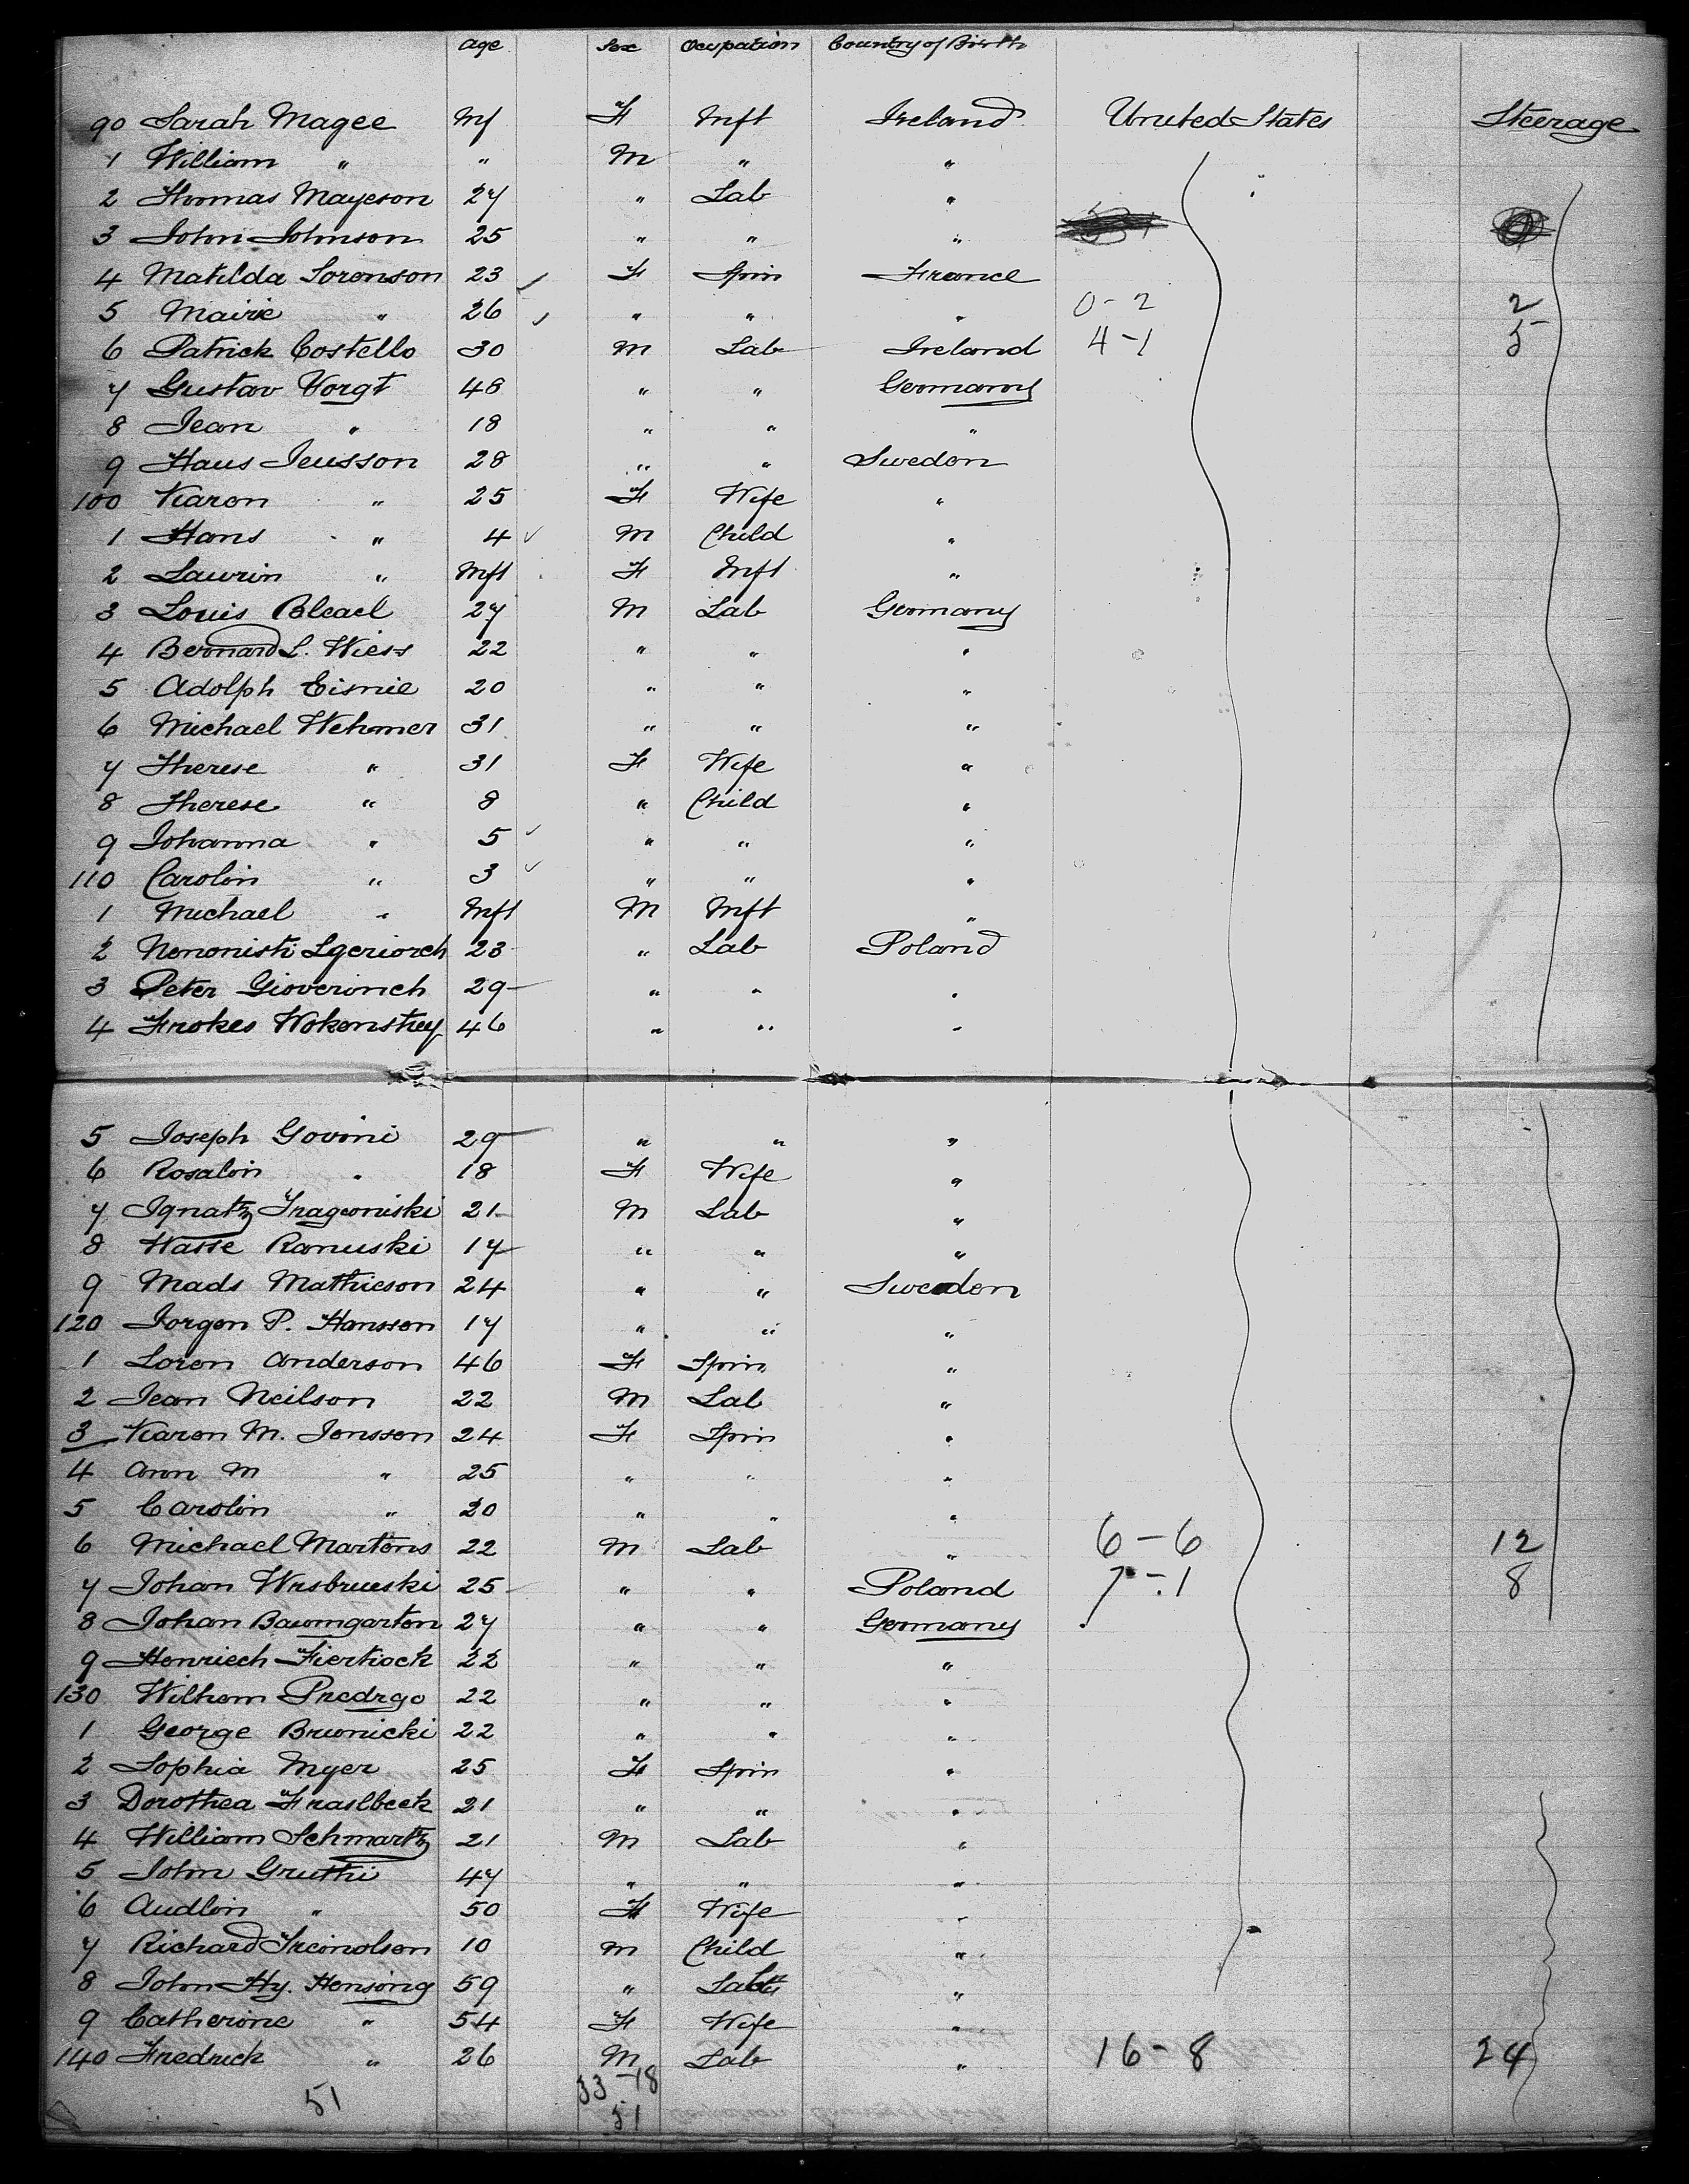 age Sex Ocupation Country of Birth
90 Sarah Magee Inf F Inft Ireland United States Steerage
1 William " " M " "
2 Thomas Mayeson 27 " Lab "
3 John Johnson 25 " " "
4 Matilda Sorenson 23 ✓ F Spin France
5 Mairie " 26 ✓ " " " 0-2 2
6 Patrick Costello 30 M Lab Ireland 4-1 5
7 Gustav Vorgt 48 " " Germany
8 Jean " 18 " " "
9 Haus Jeusson 28 " " Sweden
100 Karen " 25 F Wife "
1 Hans " 4 ✓ M Child "
2 Laurin " Inft F Inft "
3 Louis Bleael 27 M Lab Germany
4 Bernard L. Wiess 22 " " "
5 Adolph Eisnie 20 " " "
6 Michael Wehmer 31 " " "
7 Therese " 31 F Wife "
8 Therese " 8 " Child "
9 Johanna " 5 ✓ " " "
110 Carolin " 3 ✓ " " "
1 Michael " Inft M Inft "
2 Nenonisti Lgeriorch 23 " Lab Poland
3 Peter Gioverinch 29 " " "
4 Frokes Wokenstrey 46 " " "
5 Joseph Govini 29 " " "
6 Rosalin " 18 F Wife "
7 Ignatz 21 M Lab "
8 Wasse Ranuski 17 " " "
9 Mads Mathieson 24 " " Sweden
120 Jorgen P. Hansson 17 " " "
1 Loren Anderson 46 F Spin "
2 Jean Neilson 22 M Lab "
3 Karen M. Jonsson 24 F Spin "
4 Ann M " 25 " " "
5 Carolin " 20 " " "
6 Michael Martens 22 M Lab " 6-6 12
7 Johan Wrsbrueski 25 " " Poland 7-1 8
8 Johan Baumgarten 27 " " Germany
9 Henriech Fiertiock 22 " " "
130 Wilhem Predrge 22 " " "
1 George Brunicki 22 " " "
2 Sophia Myer 25 F Spin "
3 Dorothea Fraslbeck 21 " " "
4 William Schmartz 21 M Lab "
5 John Gruthi 47 " " "
6 Audlin " 50 F Wife "
7 Richard 10 M Child "
8 John Hy. Hensing 59 " Lab "
9 Catherine " 54 F Wife "
140 Fredrick " 26 M Lab " 16-8 24
51 33-18
51